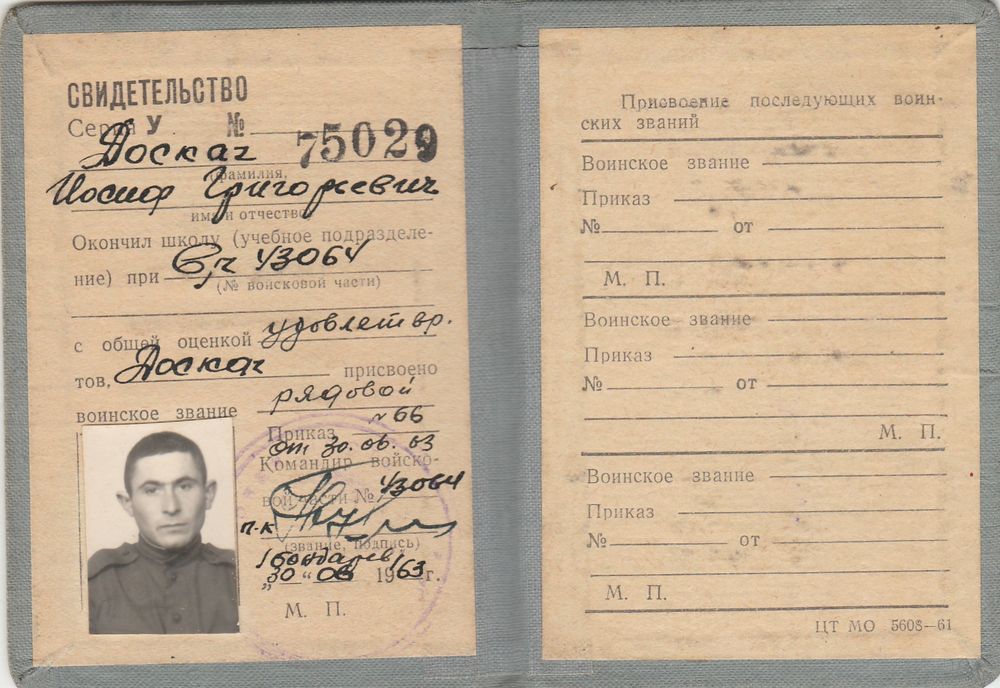 СВИДЕТЕЛЬСТВО
Серия У № 75029
Доскач
(фамилия,
Иосиф Григорьевич
имя и отчество)
Окончил школу (учебное подразделе-
ние) при в/ч 43064
(№ воисковой части)
с общей оценкой удовлетвр.
тов, Доскач присвоено
воинское звание рядовой
Приказ №66
от 30.06.63
Командир войско-
вой части № 43064
п-к
(звание, подпись)
/бондарев/
„30“ 06 1963г.
М. П.
Присвоение последующих воин-
ских званий
Воинское звание
Приказ
№ от
М. П.
Воинское звание
Приказ
№ от
М. П.
Воинское звание
Приказ
№ от
М. П.
ЦТ МО 5608—61